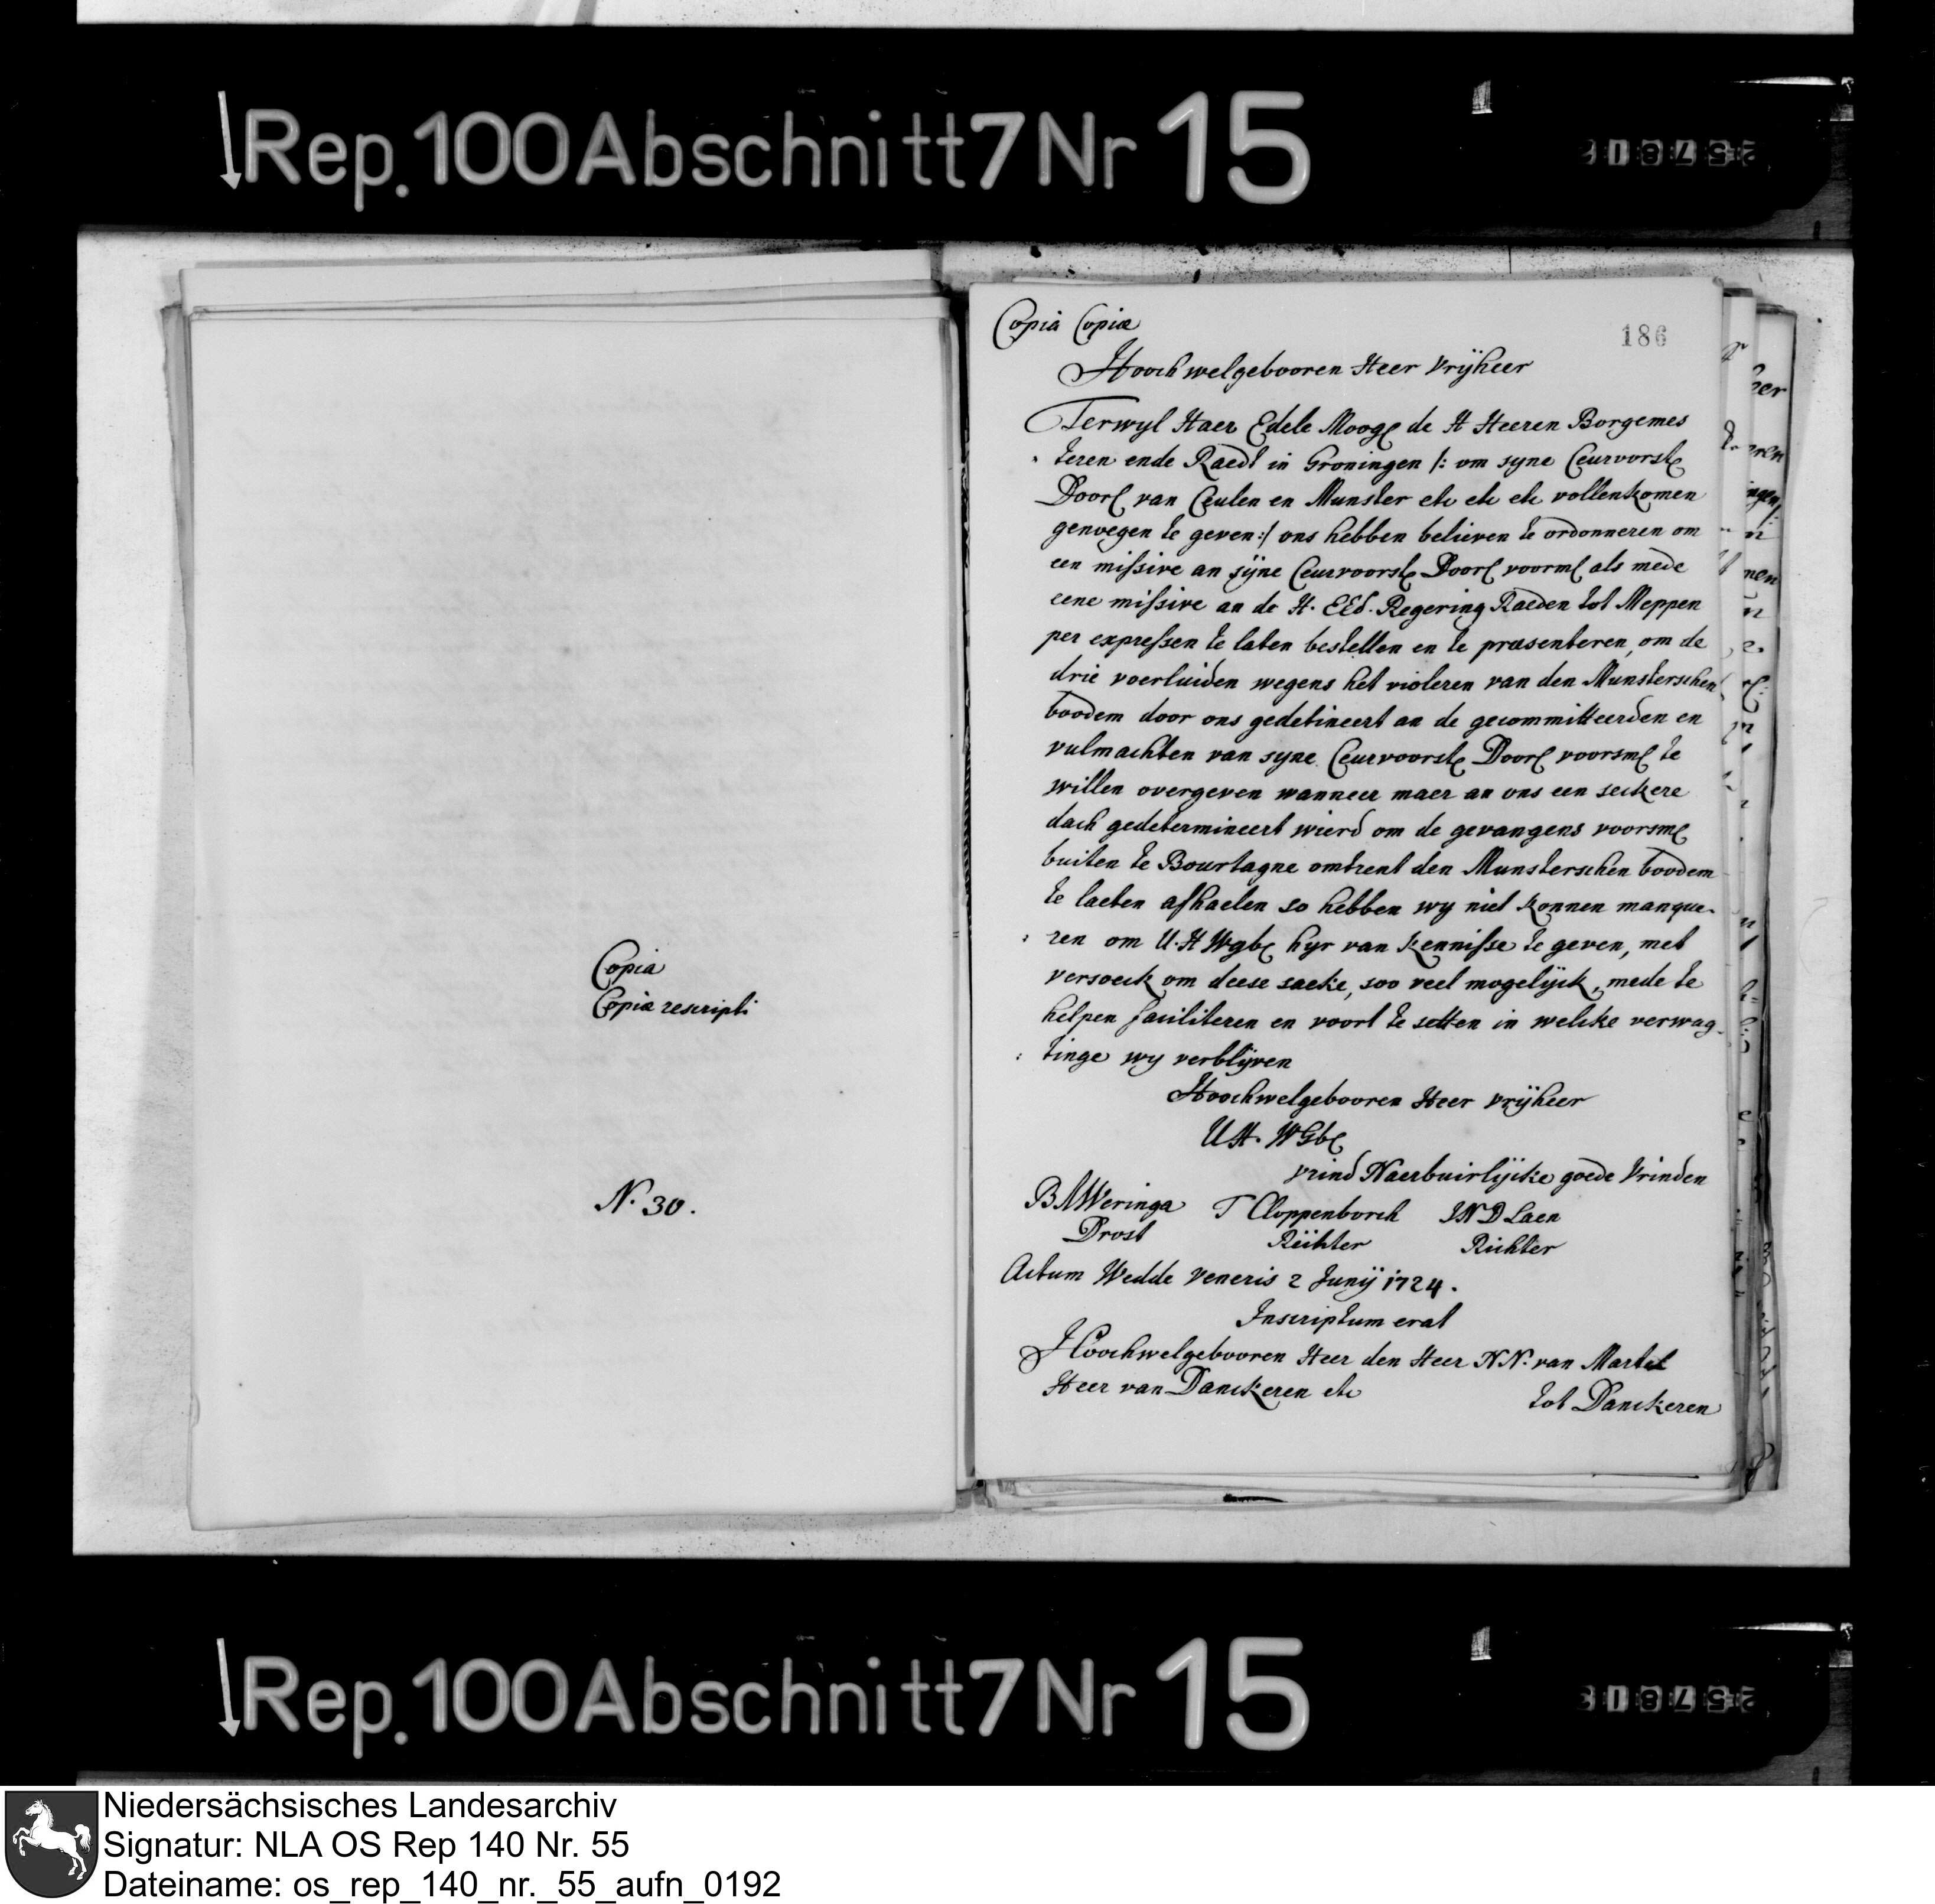 Rep. 100 Abschnitt 7 Nr 15
Copia
Copiæ rescripti
N. 30.
Copia Copiæ
186
Hooch welgebooren Heer Vrÿheer
Terwyl Haer Edele Mooge de H Heeren Borgemes
teren ende Raedt in Groningen /: om syne Ceurvorste
Doorl van Ceulen en Munster etc etc etc vollenkomen
genoegen te geven :/ ons hebben believen te ordonneren om
een missive an sÿne Ceurvoorste Doorl voorml als mede
eene missive an de H. EEd. Regering Raeden tot Meppen
per expressen te laten bestellen en te præsenteren, om de
drie voerluiden wegens het violeren van den Munsterschen
boodem door ons gedetineert an de gecommitteerden en
vulmachten van syne Ceurvoorste Doorl voorsml te
willen overgeven wanneer maer an ons een seckere
dach gedetermineert wierd om de gevangens voorsml
buiten te Bourtagne omtrent den Munsterschen boodem
te laeten afhaelen so hebben wy niet konnen manque-
ren om U. H Wgb hyr van kennisse te geven, met
versoeck om deese saeke, soo veel mogelÿck, mede te
helpen faciliteren en voort te setten in welcke verwag-
tinge wy verblÿven
Hoochwelgebooren Heer vrÿheer
UH. WGb
vrind Naerbuirlÿcke goede Vrinden
B Weringa T Cloppenborch J W D Laen
Drost Richter Richter
Actum Wedde Veneris 2 Junÿ 1724.
Inscriptum erat
Hoochwelgebooren Heer den Heer N N. van Martel
Heer van Danckeren etc
tot Danckeren
Rep. 100 Abschnitt 7 Nr 15
Niedersächsisches Landesarchiv
Signatur: NLA OS Rep 140 Nr. 55
Dateiname: os_rep_140_nr._55_aufn_0192